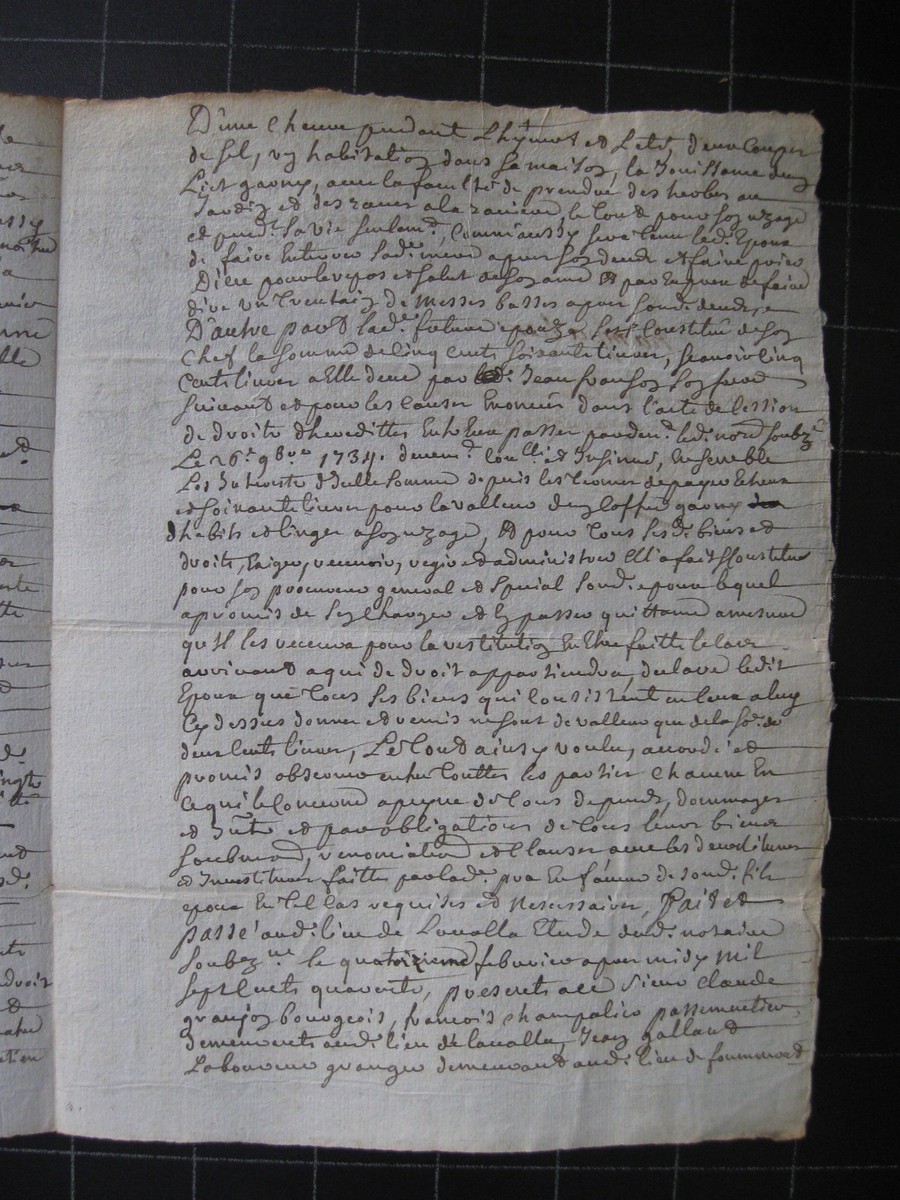 D'une chevre pendant l'hyvert et l'eté, deux couper
de sel, un habitation dans sa maison, la jouissance d'un
lict garny, avec la faculté de prendre des herbes au
jardin et des raves a la raviere, le tout pour son uzage
et pend.t sa vie seulem.t, comm'aussy sera tenu led. Epoux
de faire enterrer sad.e mere apres son deces et faire prier
Dieu pour le repos et salut de son ame et par exprez de faire
dire un trentain de messes basses apres sond. deces,
D'autre part lad.e future epouze s'est constitué de son
chef la somme de cinq cents soixante livres, scavoir cinq
cents livres a elle deue par Jean françon son frere
suivant et pour les causes enoncées dans l'acte de cession
de droits d'hereditter entr'eux passer pardev.t led. no.re soubz.né
Le 26.e 9bre 1734. deuem.t con.llé et insinué, ensemble
Les interests d'icelle somme depuis les termes de payer echeus
et soixante livres pour la valleur d'un coffre garny
d'habits et linges a son uzage, et pour tous sesd. biens et
droits, exiger, recevoir, regir et administrer elle a fait et constitué
pour son procureur general et special sond. epoux lequel
a promis de s'en charger et en passer quittance a mesure
qu'il les recevra pour la restitution en etre faitte le cas
arrivant a qui de droit appartiendra, declare ledit
Epoux que tous ses biens qui consistent en ceux a luy
cy dessus donner et remis ne sont de valleur que de la so.e de
deux cents livres, Le tout ainsy voulu, accordé et
promis observer entre touttes les parties chacune en
ce qui le concerne a peyne de tous depends, dommages
et int.ts et par obligations de tous leurs biens
soubmis.ons, renonciations et clauses avec les
et investitures faitte par lad.e en faveur de sond. fils
epoux en tel cas requises et necessaires, Fait et
passé aud. lieu de Lavalla Etude dud. notaire
soubzig.né le quatorzieme febvrier apres midy mil
sept cents quarante, presents a ce Sieur claude
granjon bourgeois, françois champalier passementier
demeurants aud. lieu de lavalla, Jean galland
Laboureur granger demeurant aud. lieu de